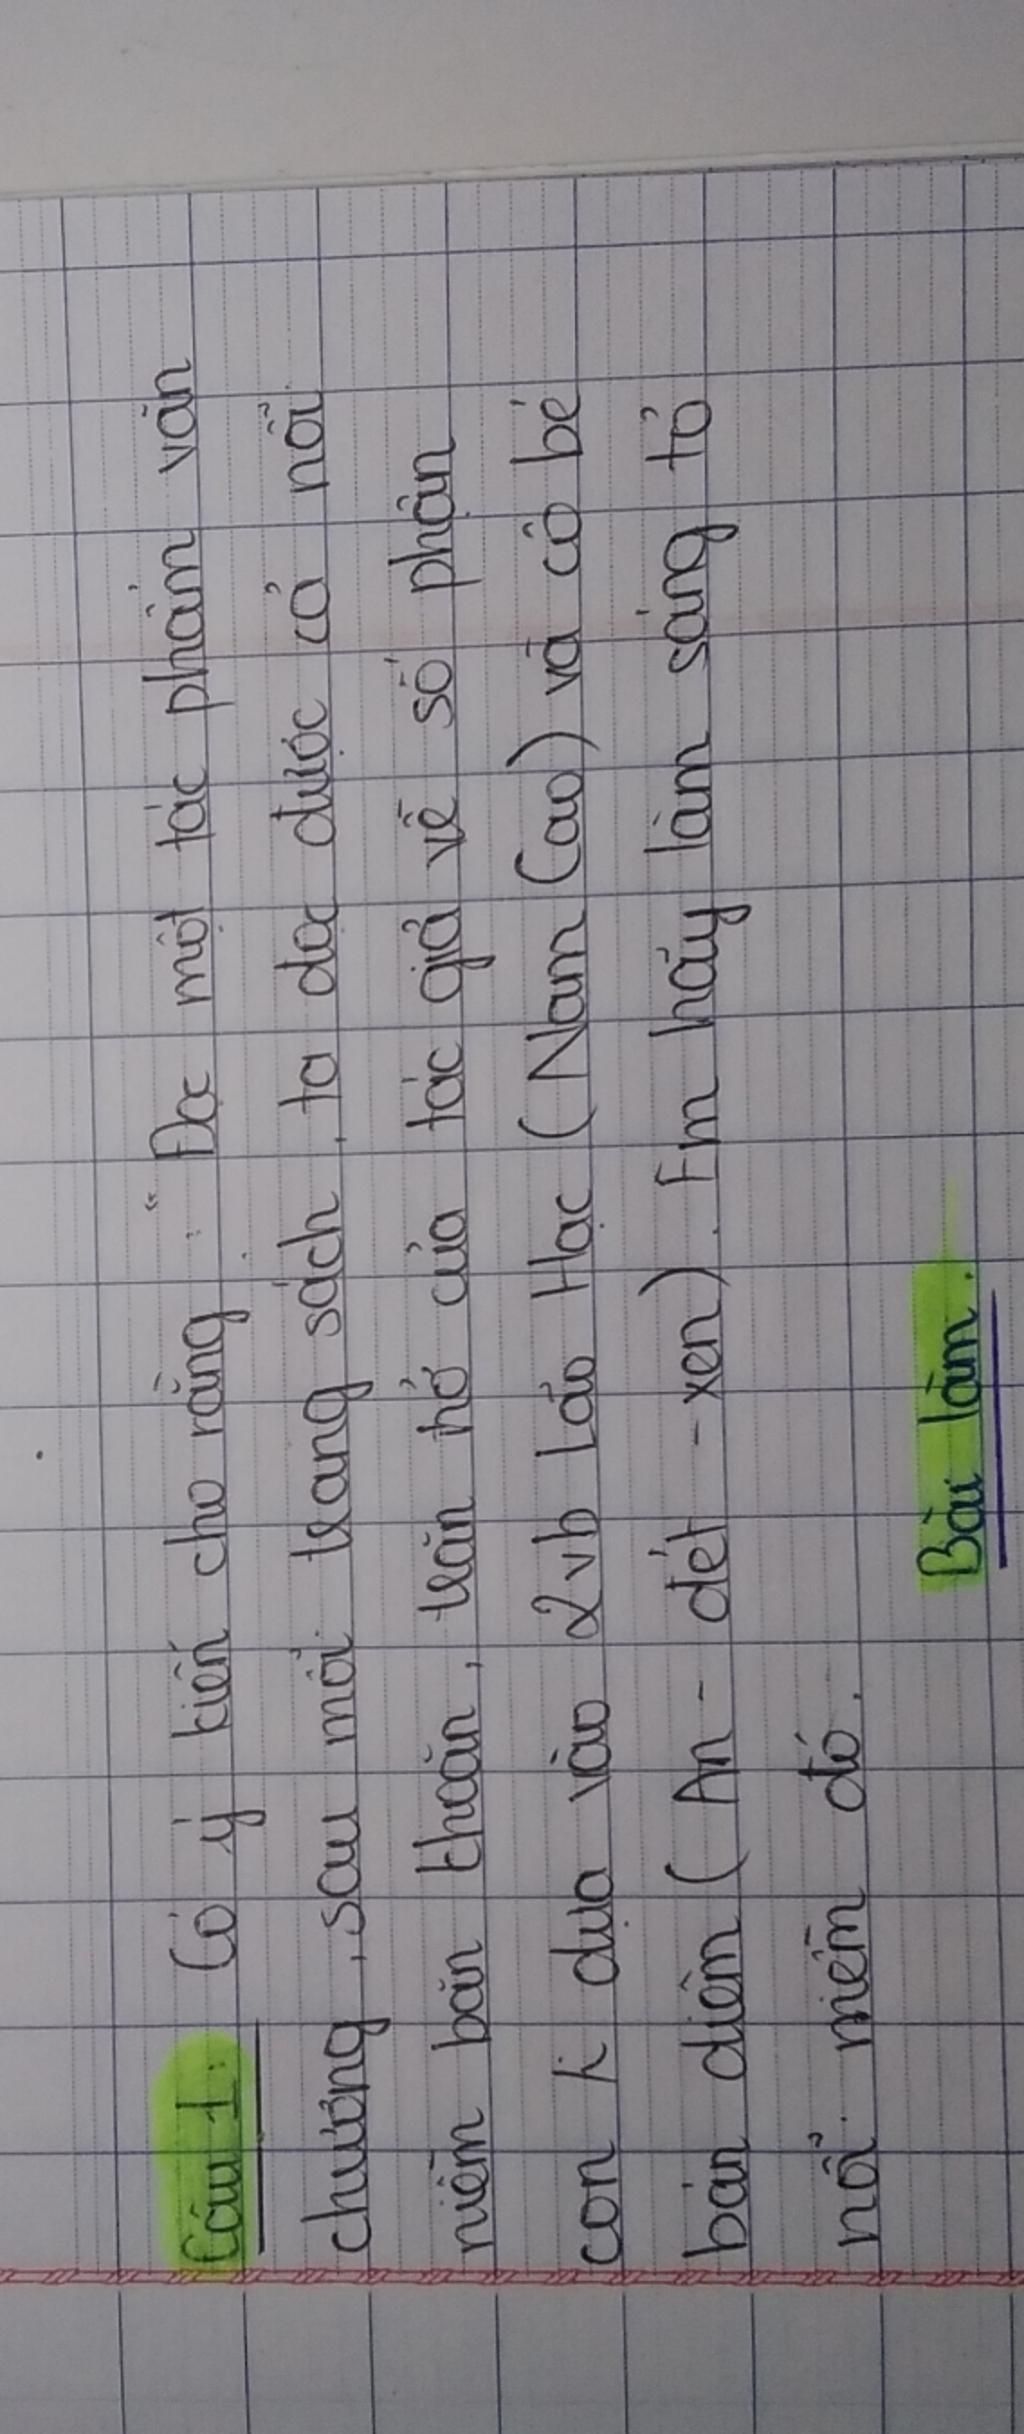 Câu 1: Có ý kiến cho rằng: "Đọc một tác phẩm văn
chương, sau mỗi trang sách, ta đọc được cả nỗi
niềm băn khoăn, trăn trở của tác giả về số phận
con h. dựa vào 2 vb Lão Hạc (Nam Cao) và cô bé
bán diêm (An - đét - xen). Em hãy làm sáng tỏ
nỗi niềm đó.
Bài làm.